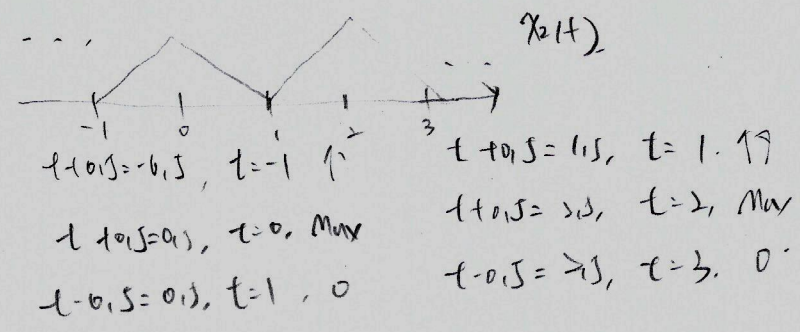 ... x₂(t)
...
-1 0 1 2 3
t+0.5=-0.5, t=-1 个
t+0.5=0.5, t=0, Max
t-0.5=0.5, t=1, 0
t+0.5=1.5, t=1.
t+0.5=2.5, t=2, Max
t-0.5=2.5, t=3. 0